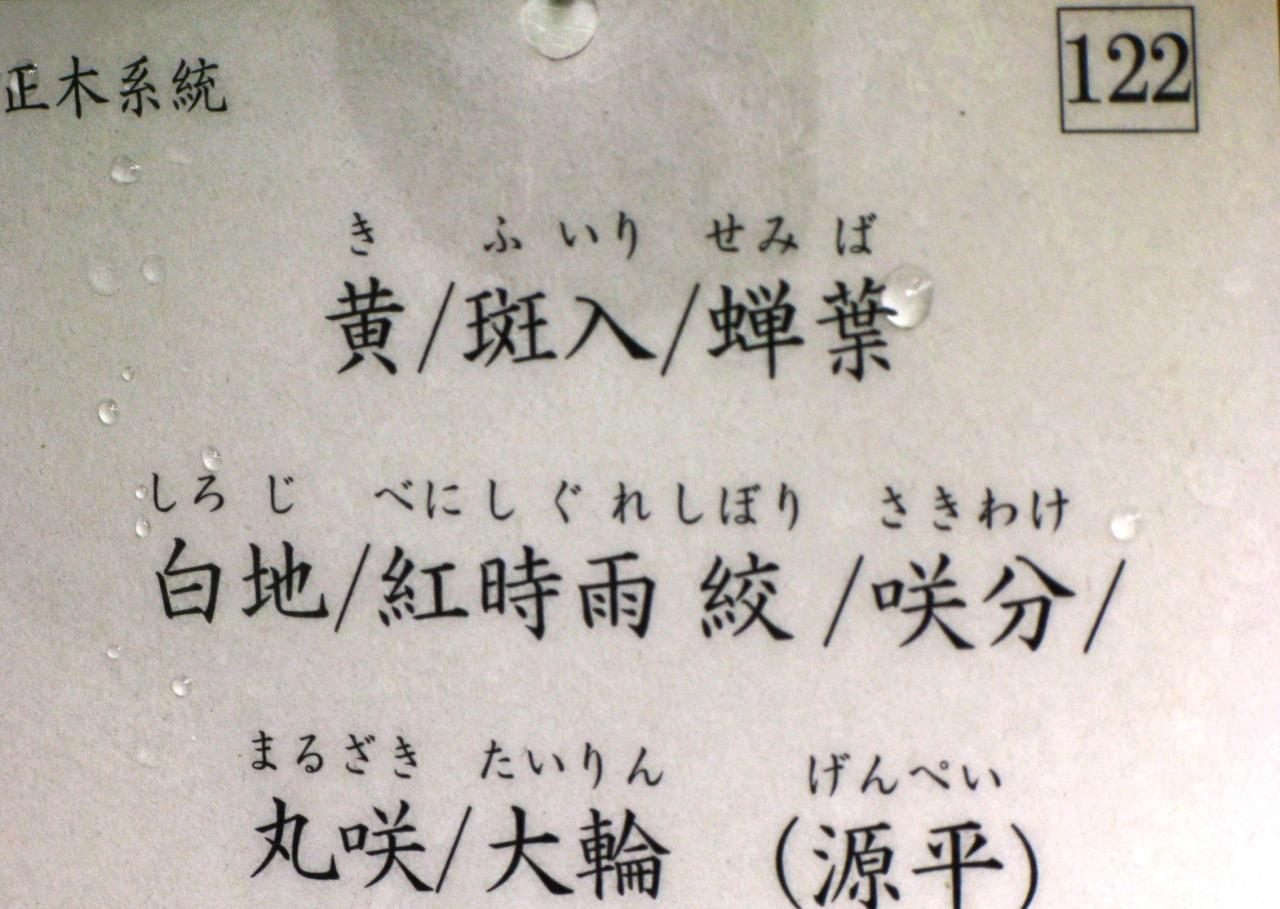 正木系統
122
き ふいり せみば
黄/斑入/蝉葉
しろじ べにしぐれしぼり さきわけ
白地/紅時雨絞/咲分/
まるざき たいりん げんぺい
丸咲/大輪 (源平)